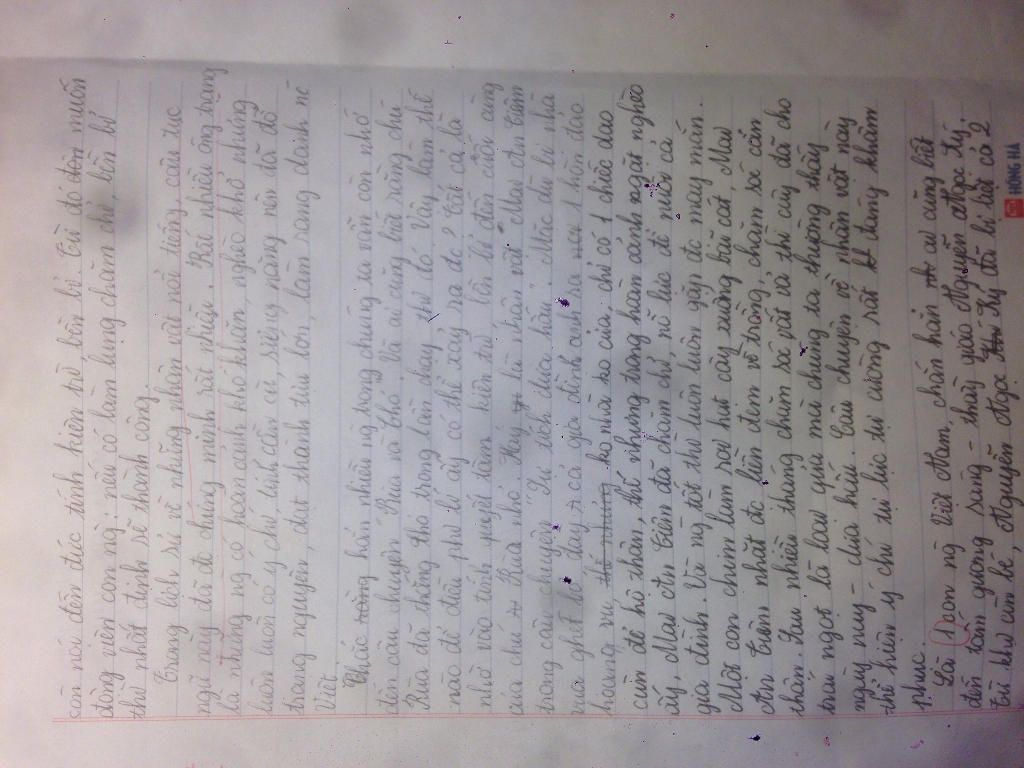 còn nói đến đức tính kiên trì, bền bỉ. Từ đó đến muốn
động viên con ng`: nếu có làm lụng chăm chỉ, bền bỉ
thì nhất định sẽ thành công.
Trong lịch sử về những nhân vật nổi tiếng, câu tục
ngữ này đã đc chứng minh rất nhiều. Rất nhiều ông trạng
là những ng có hoàn cảnh khó khăn, nghèo khổ nhưng
luôn luôn có ý chí, tính cần cù siêng năng nên đã đỗ
trạng nguyên, đạt thành tựu lớn, làm rạng danh nc
Việt.
Chắc hẳn nhiều ng trong chúng ta vẫn còn nhớ
đến câu chuyện "Rùa và thỏ". Và ai cũng biết rằng chú
Rùa đã thắng thỏ trong lần chạy thi đó. Vậy làm thế
nào để điều phi lí ấy có thể xảy ra đc? Tất cả là
nhờ vào tính quyết tâm kiên trì, bền bỉ đến cuối cùng
của chú Rùa nhỏ. Hay từ nhân vật Mai An Tiêm
trong câu chuyện "Sự tích dưa hấu". Mặc dù bị nhà
vua ghét bỏ đày cả gia đình anh ra 1 hòn đảo
hoang vu họ nhà tro của, chỉ có 1 chiếc dao
cùn để hộ thân, thế nhưng trong hoàn cảnh ngặt nghèo
ấy, Mai An Tiêm đã chăm chỉ, nỗ lực để nuôi cả
gia đình. Và ng tốt thì luôn luôn gặp đc may mắn.
Một con chim làm rơi hạt cây xuống bãi cát, Mai
An Tiêm nhặt đc liền đem về trồng, chăm sóc cẩn
thận. Sau nhiều tháng chăm sóc vất vả thì cây đã cho
trái ngọt là loại quả mà chúng ta thường thấy
ngày nay - dưa hấu. Câu chuyện về nhân vật này
thể hiện ý chí tự lực tự cường rất đáng khâm
phục.
Là 1 con ng Việt Nam, chắc hẳn ai cũng biết
đến tấm gương sáng - thầy giáo Nguyễn Ngọc Ký.
Từ khi còn bé, Nguyễn Ngọc Ký đã bị liệt cả 2
HỒNG HÀ